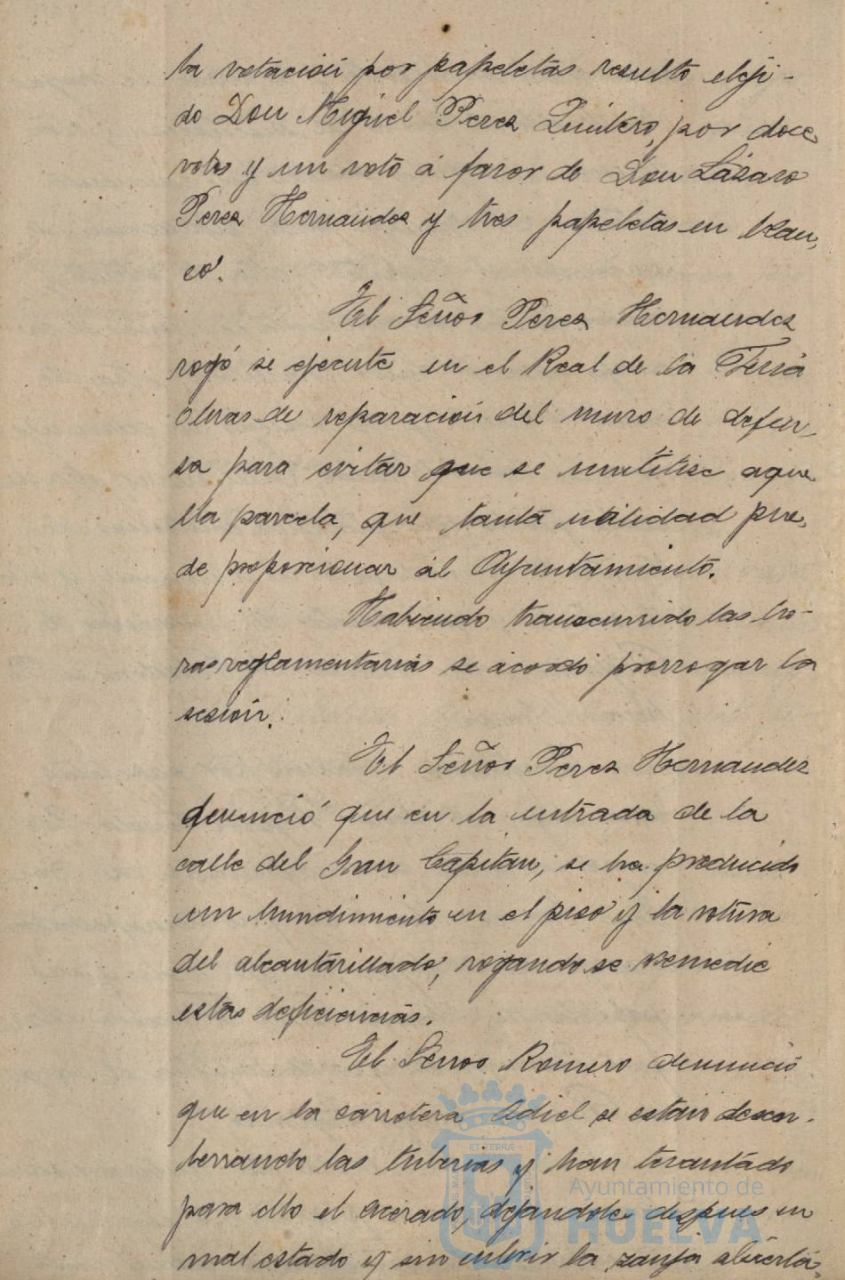 la votación por papeletas resulto eleji-
do Don Miguel Perez Quintero, por doce
votos y un voto á favor de Don Lázaro
Perez Hernandez y tres papeletas en blan-
co.
El Señor Perez Hernandez
rogó se ejecute en el Real de la Feria
obras de reparación del muro de defen-
sa para evitar que se inutilise aque
lla parcela, que tanta utilidad pue-
de proporcionar al Ayuntamiento.
Habiendo transcurrido las ho-
ras reglamentarias se acordó prorrogar la
sesión.
El Señor Perez Hernandez
denunció que en la entrada de la
calle del Gran Capitan, se ha producido
un hundimiento en el piso y la rotura
del alcantarillado, rogando se remedie
estas deficiencias.
El Señor Romero denunció
que en la carretera Odiel se están desen-
terrando las tuberias y han levantado
para ello el acerado, dejandole despues en
mal estado y sin cubrir la zanja abierta.
Ayuntamiento de
HUELVA